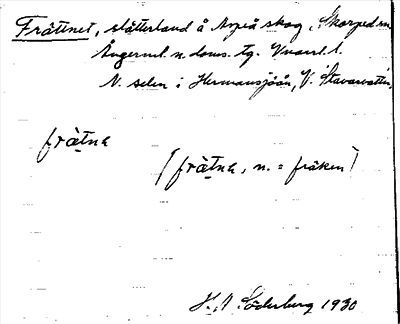 Frätinet, slåtterland å Anjeå skog, Skorped sn
Ångerml. n. doms. tg. Vnorrl. l.
N. selen i Hermansjöån, V. Stavarvattn.
frä̀tnɐ
(frä̀tnɐ, n. = fräken)
H. V. Söderberg 1930